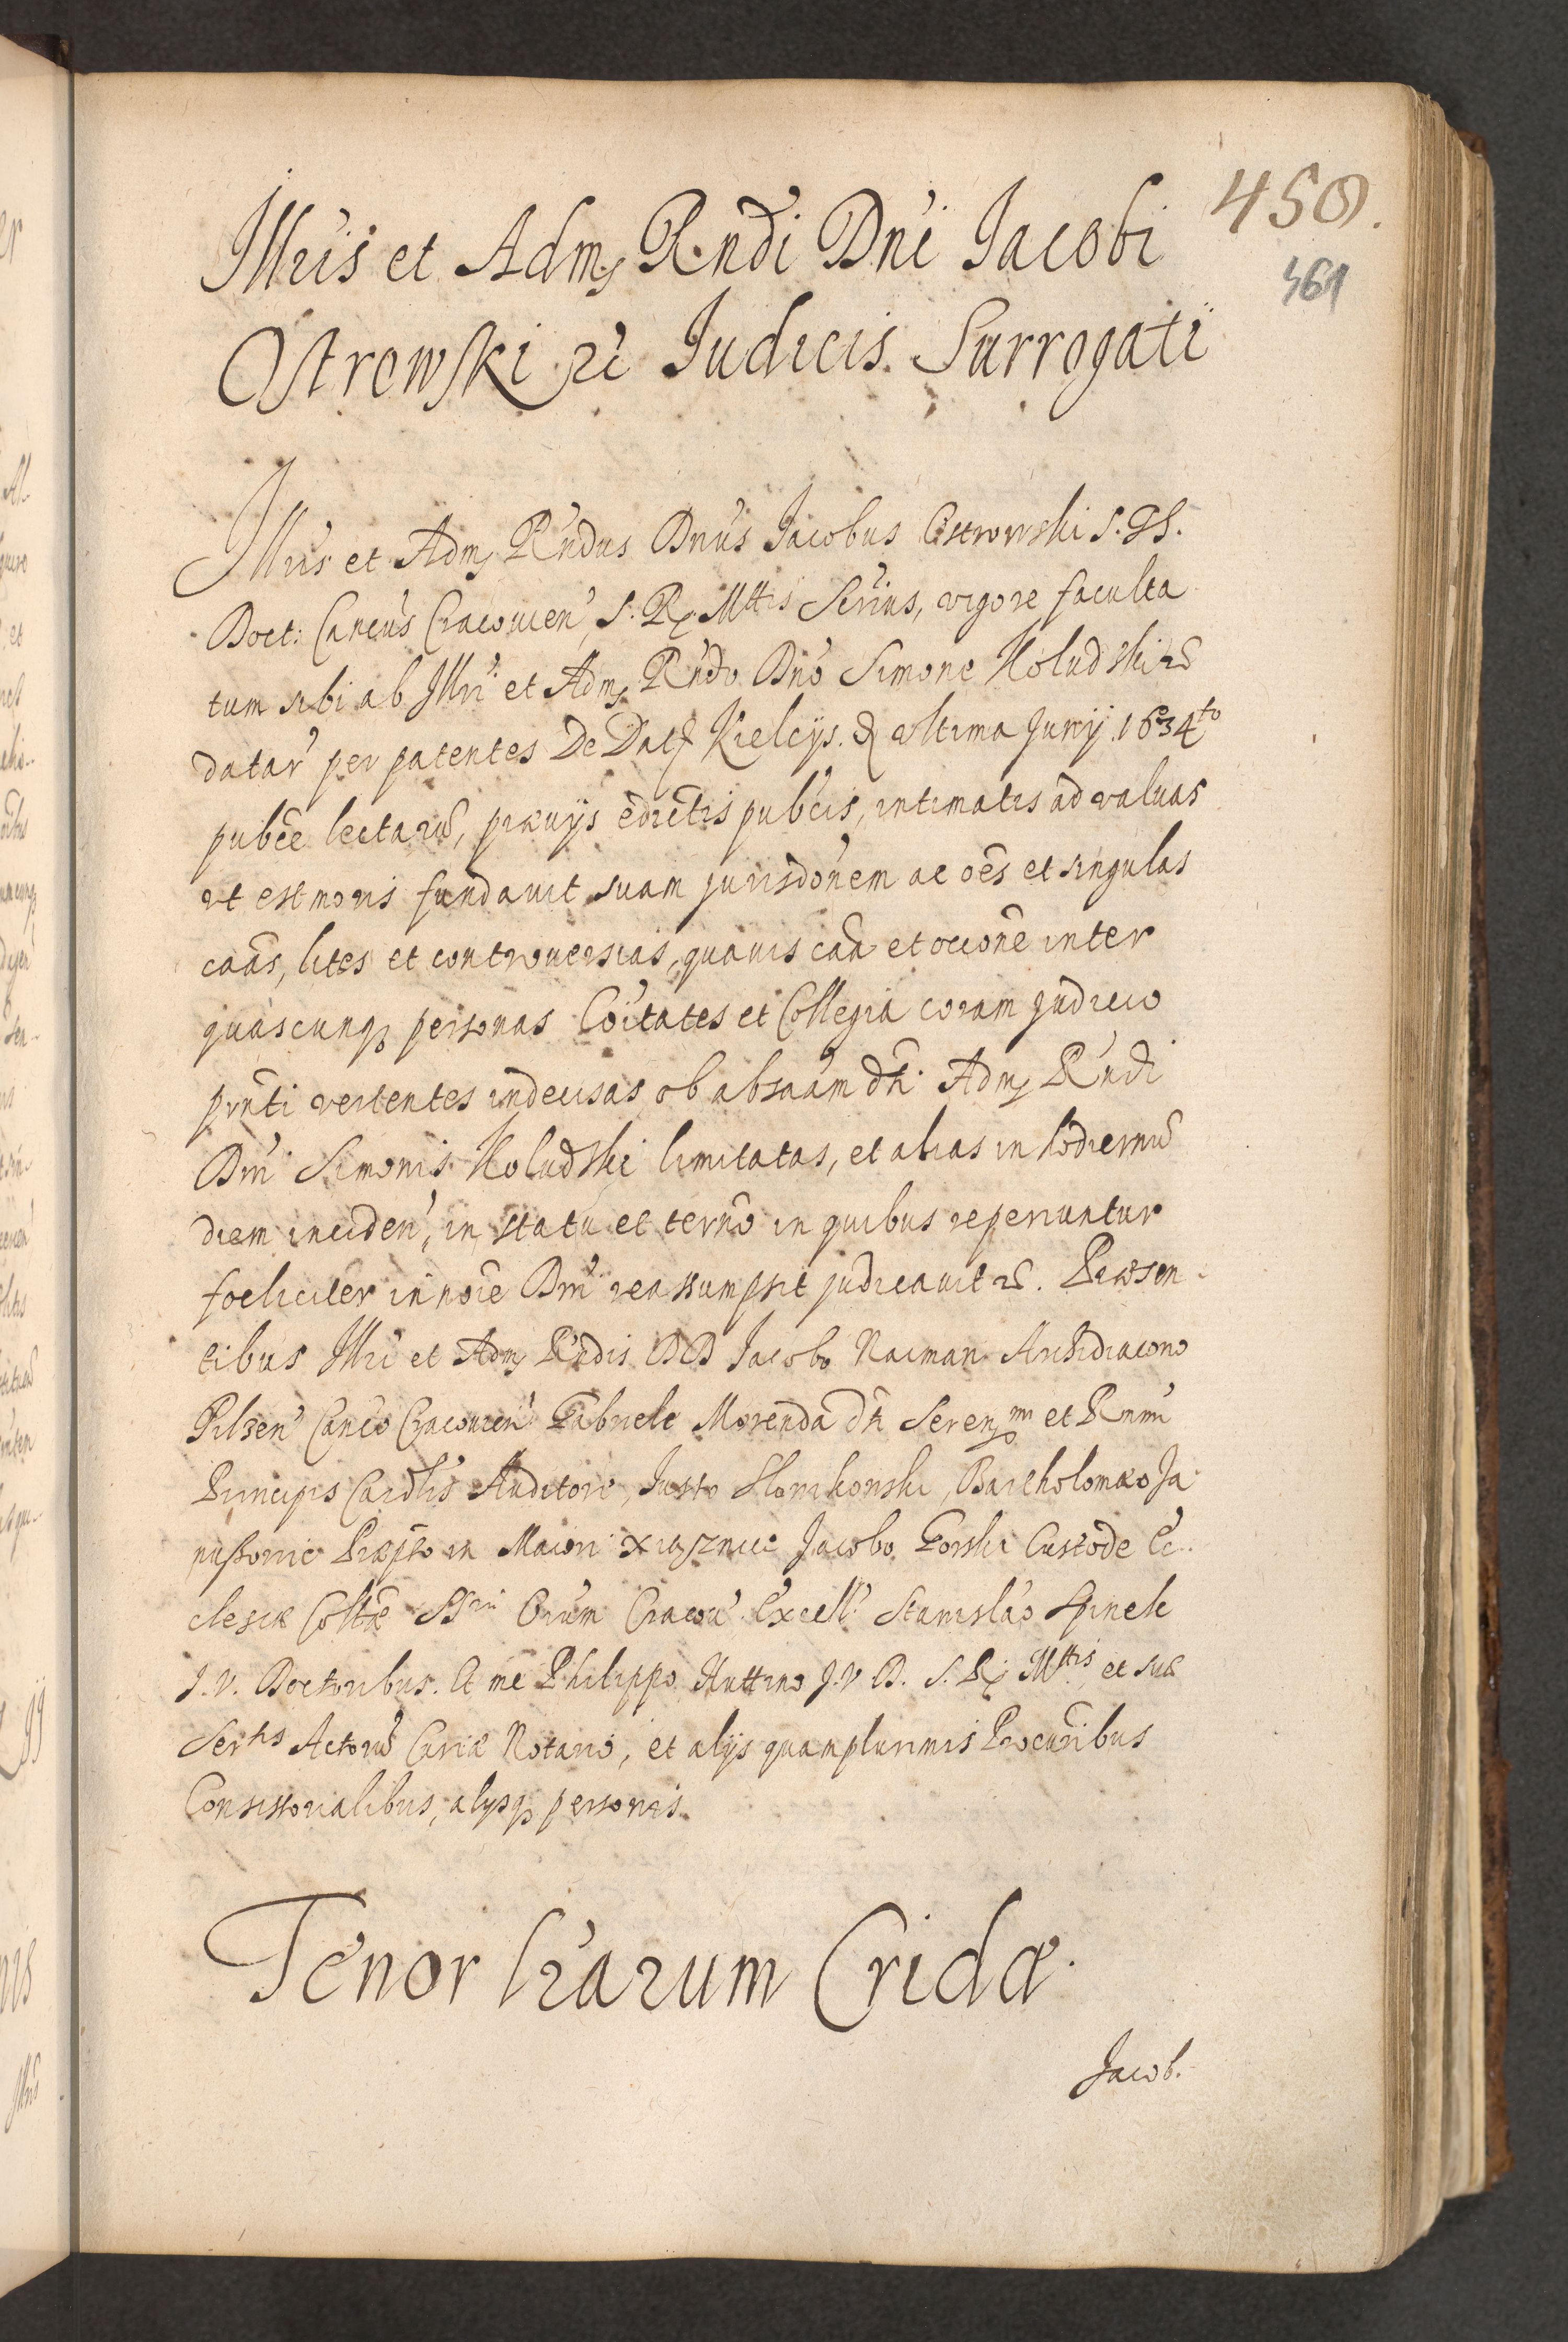 450.
461
Illris et Admj Rndi Dni Jacobi
Ostrowski zc Judicis Surrogati
Illris et Admj Rndus Dnus Jacobus Ostrowski S.
Doct: Cancus Cracouien, S. Rx Mttis Scrius, vigore faculta
tum sibi ab Illri et Admj Rndo Dno Simone Koludski zc
datar per patentes De Datt Kielcijs. Die vltima Junij 1634to
pubce lectarū, præuijs edictis pubcis, intimatis ad valuas
vt est moris fundauit suam jurisdonem ac oēs et singulas
caās, lites et controuersias, quauis caā et occionē inter
quascunq personas Coitates et Collegia coram judicio
prnti vertentes indecisas ob absaām dti Admj Rndi
Dni Simonis Koludski limitatas, et alias in hodiernū
diem inciden, in statu et ternō in quibus reperiuntur
foeliciter in noīe Dni reassumpsit judicauit zc. Præsen
tibus Illri et Admj Rndis DD Jacobo Naiman Archidiacono
Pilzen Canco Cracouien Gabriele Morenda dti Serenmi et Rnmi
Principis Cardlis Auditore, Justo Slowikowski, Bartholomæo Ja
nussowic Præpto in Maiori Xiąznice Jacobo Gorski Custode Ec
clesiæ Colltæ Orum Cracou. Excell. Stanislao Spinek
J.V. Doctoribus. Et me Philippo Huttino J.V.D. S. Rx Mttis et suæ
Sertis Actorū Curiæ Notario, et alijs quamplurimis Procuribus
Consistorialibus, alijsq personis.
Tenor lrarum Cridæ.
Jacob.